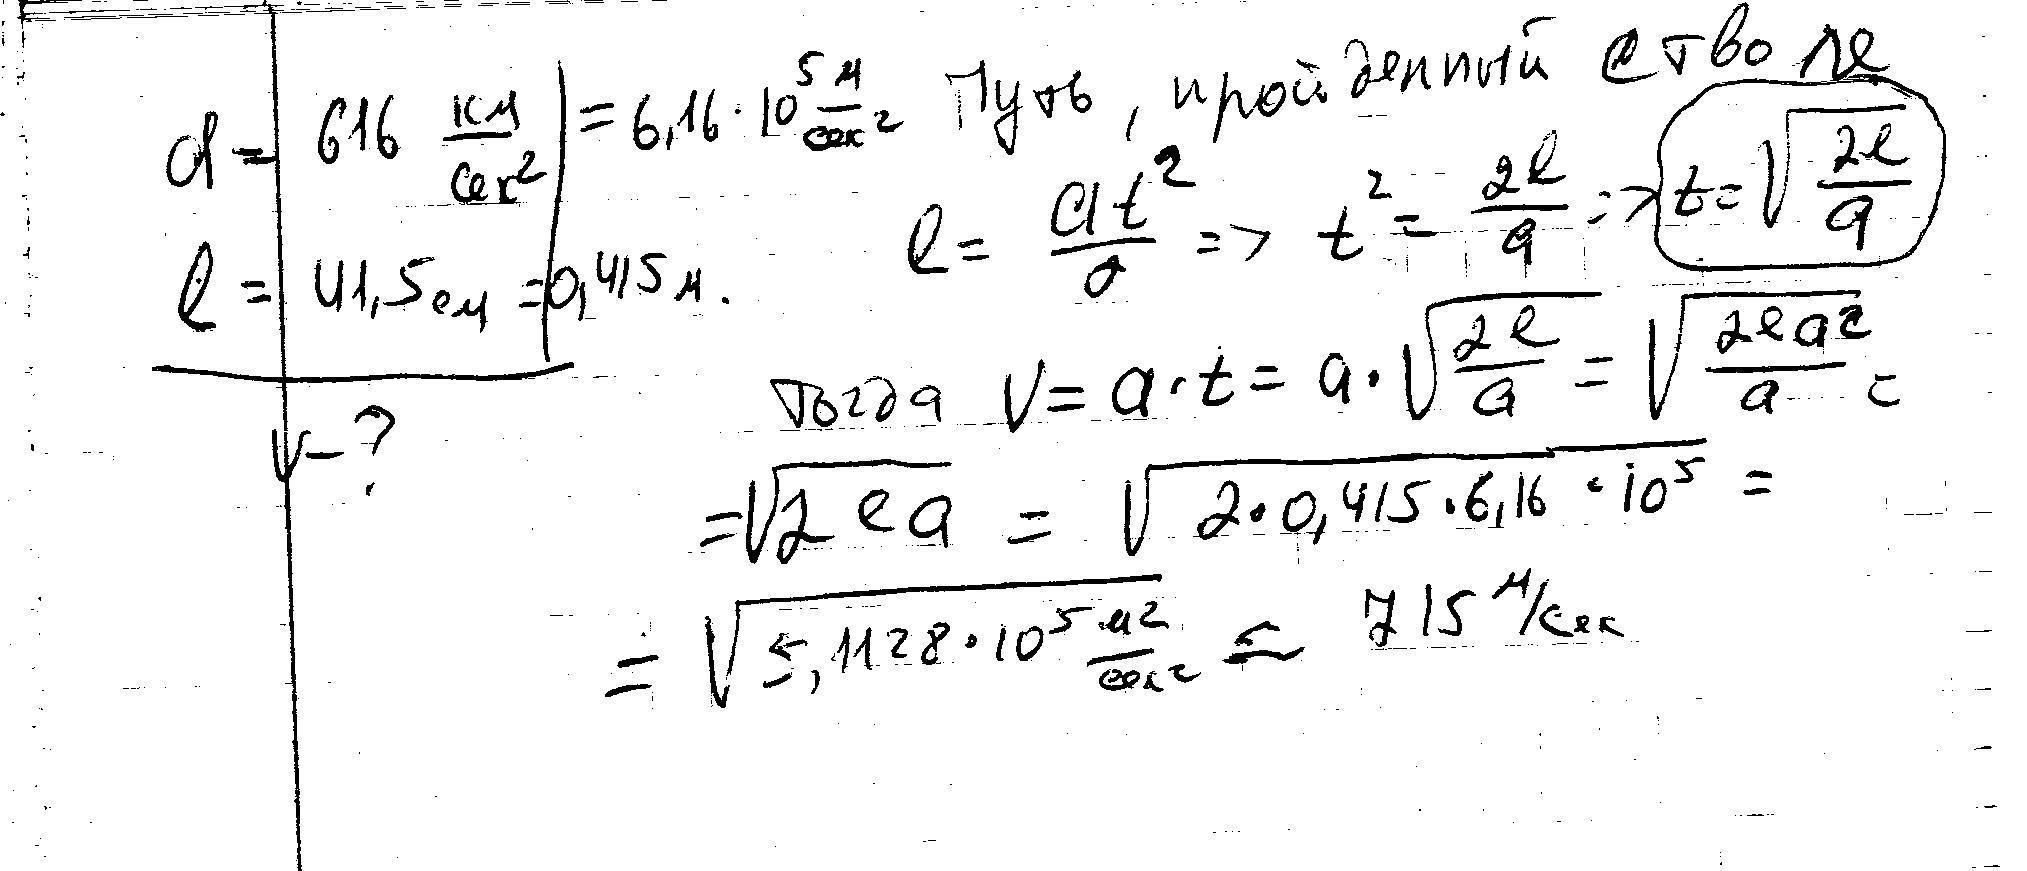 a = 616 км/сек² = 6,16·10⁵ м/сек²
l = 41,5 см = 0,415 м.
v – ?
Путь, пройденный в стволе
l = at²/2 => t² = 2l/a => t = √(2l/a)
тогда v = a·t = a·√(2l/a) = √(2la²/a) =
= √(2la) = √(2·0,415·6,16·10⁵) =
= √(5,1128·10⁵ м²/сек²) ≈ 715 м/сек